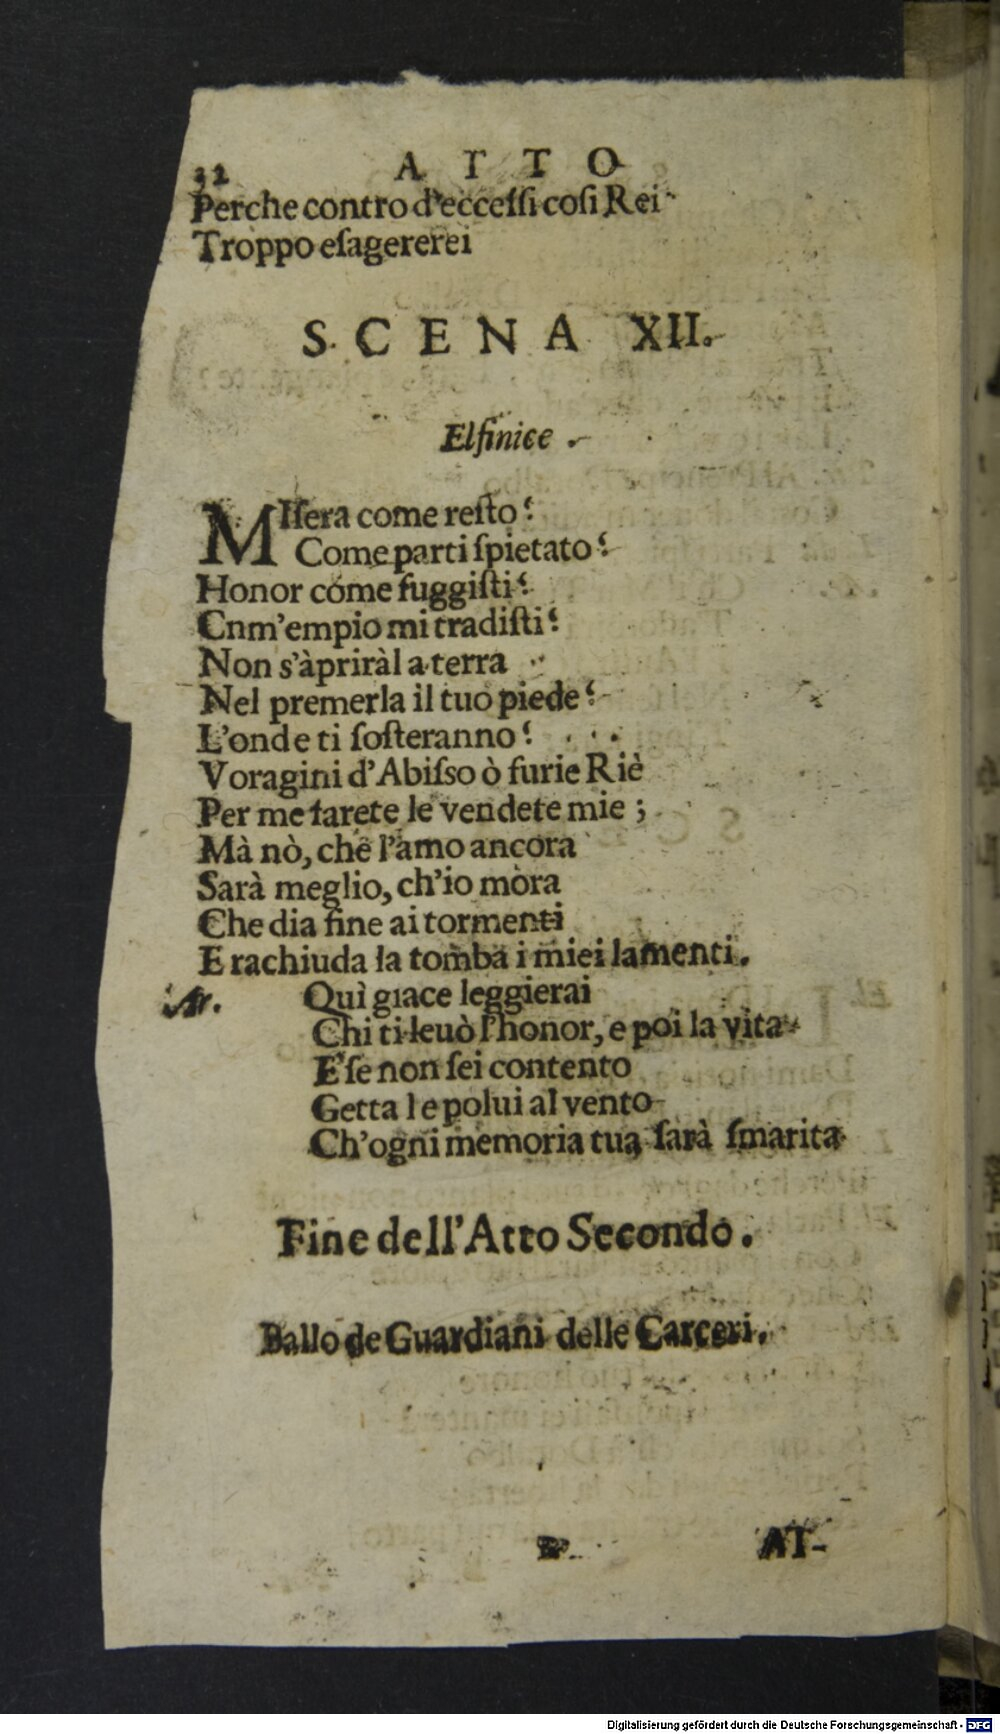 32 ATTO
Perche contro d'eccessi così Rei
Troppo esagererei
SCENA XII.
Elfinice.
MIsera come resto?
Come parti spietato?
Honor come fuggisti?
Cnm'empio mi tradisti?
Non s'àpriràl a terra
Nel premerla il tuo piede?
L'onde ti sosteranno?
Voragini d'Abisso ò furie Riè
Per me farete le vendete mie;
Mà nò, che l'amo ancora
Sarà meglio, ch'io mora
Che dia fine ai tormenti
E rachiuda la tomba i miei lamenti.
Ar. Quì giace leggierai
Chi ti leuò l'honor, e poi la vita
E se non sei contento
Getta le polui al vento
Ch'ogni memoria tua sarà smarita
Fine dell'Atto Secondo.
Ballo de Guardiani delle Carceri.
AT-
Digitalisierung gefördert durch die Deutsche Forschungsgemeinschaft - DFG